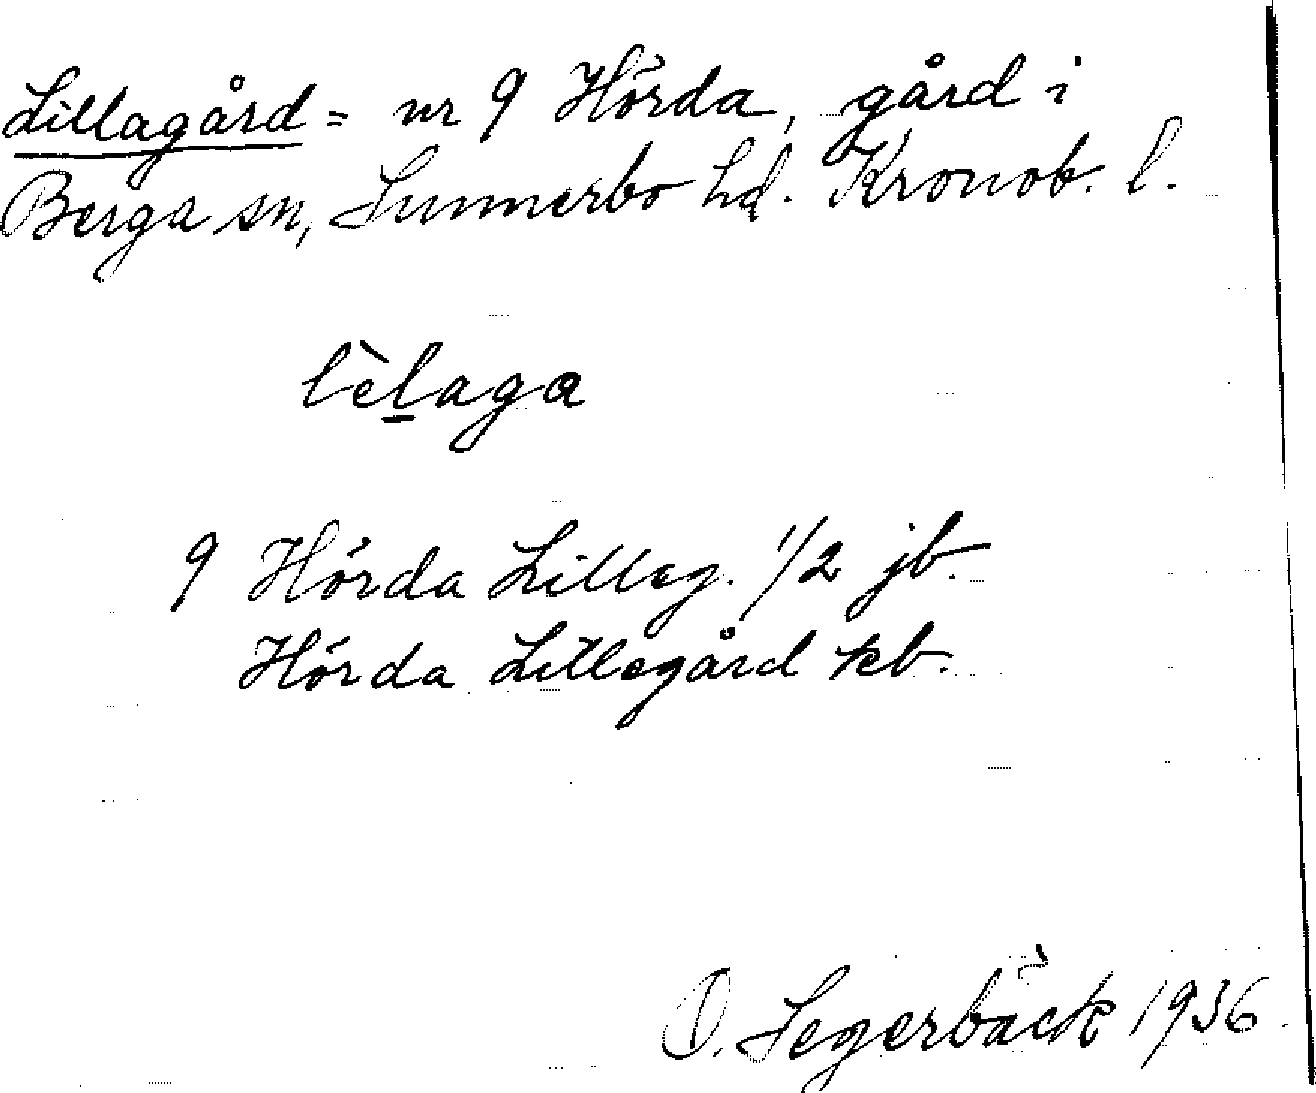 Lillagård = nr 9 Hörda, gård i
Berga sn, Sunnerbo hd. Kronob. l.
lèḻaga
9 Hörda Lilleg. 1/2 jb.
Hörda Lillegård kb.
D. Segerbäck 1936